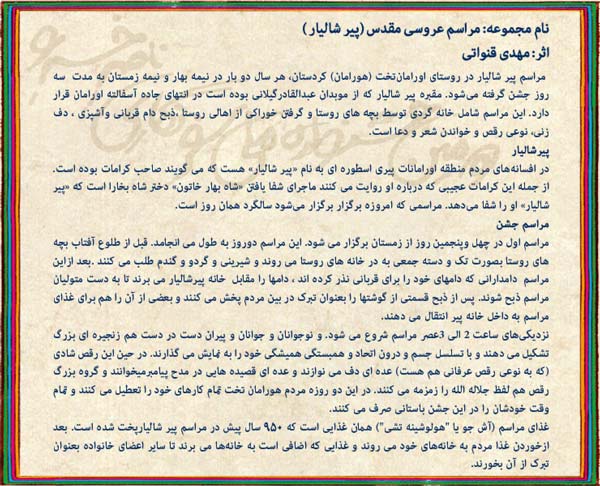 نام مجموعه: مراسم عروسی مقدس (پیر شالیار )
اثر: مهدی قنواتی
مراسم پیر شالیار در روستای اورامان‌تخت (هورامان) کردستان، هر سال دو بار در نیمه بهار و نیمه زمستان به مدت سه
روز جشن گرفته می‌شود. مقبره پیر شالیار که از موبدان عبدالقادرگیلانی بوده است در انتهای جاده آسفالته اورامان قرار
دارد. این مراسم شامل خانه گردی توسط بچه های روستا و گرفتن خوراکی از اهالی روستا ،ذبح دام قربانی وآشپزی ، دف
زنی، نوعی رقص و خواندن شعر و دعا است.
پیرشالیار
در افسانه‌های مردم منطقه اورامانات پیری اسطوره ای به نام «پیر شالیار» هست که می گویند صاحب کرامات بوده است.
از جمله این کرامات عجیبی که درباره او روایت می کنند ماجرای شفا یافتن «شاه بهار خاتون» دختر شاه بخارا است که «پیر
شالیار» او را شفا می‌دهد. مراسمی که امروزه برگزار برگزار می‌شود سالگرد همان روز است.
مراسم جشن
مراسم اول در چهل وپنجمین روز از زمستان برگزار می شود. این مراسم دوروز به طول می انجامد. قبل از طلوع آفتاب بچه
های روستا بصورت تک و دسته جمعی به در خانه های روستا می روند و شیرینی و گردو و گندم طلب می کنند .بعد ازاین
مراسم دامدارانی که دامهای خود را برای قربانی نذر کرده اند ، دامها را مقابل خانه پیرشالیار می برند تا به دست متولیان
مراسم ذبح شوند. پس از ذبح قسمتی از گوشتها را بعنوان تبرک در بین مردم پخش می کنند و بعضی از آن را هم برای غذای
مراسم به داخل خانه پیر انتقال می دهند.
نزدیکی‌های ساعت 2 الی 3عصر مراسم شروع می شود. و نوجوانان و جوانان و پیران دست در دست هم زنجیره ای بزرگ
تشکیل می دهند و با تسلسل جسم و درون اتحاد و همبستگی همیشگی خود را به نمایش می گذارند. در حین این رقص شادی
(که به نوعی رقص عرفانی هم هست) عده ای دف می نوازند و عده ای قصیده هایی در مدح پیامبرمیخوانند و گروه بزرگ
رقص هم لفظ جلاله الله را زمزمه می کنند. در این دو روزه مردم هورامان تخت تمام کارهای خود را تعطیل می کنند و تمام
وقت خودشان را در این جشن باستانی صرف می کنند.
غذای مراسم (آش جو یا "هولوشینه تشی") همان غذایی است که ۹۵۰ سال پیش در مراسم پیر شالیارپخت شده است. بعد
ازخوردن غذا مردم به خانه‌های خود می روند و غذایی که اضافی است به خانه‌ها می برند تا سایر اعضای خانواده بعنوان
تبرک از آن بخورند.